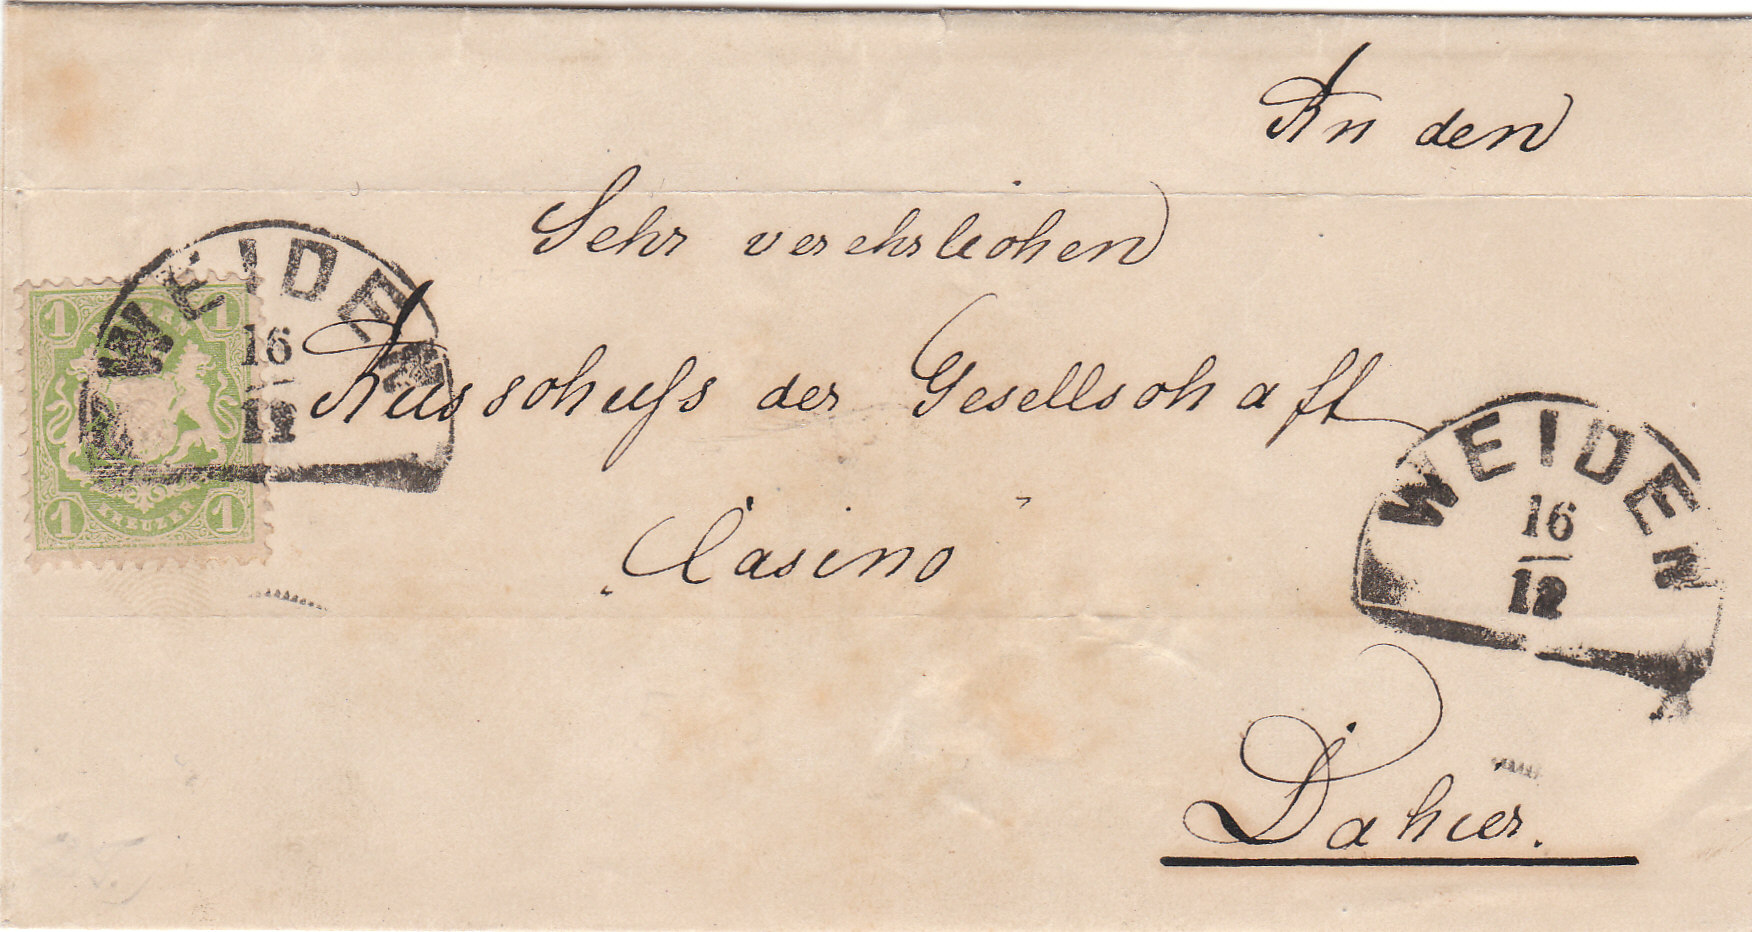 An den
Sehr verehrlichen
Ausschuſs der Gesellschaft
„Casino"
Dahier.
WEIDEN
16
12
WEIDEN
16
12
1
1
BAYERN
KREUZER
1
1